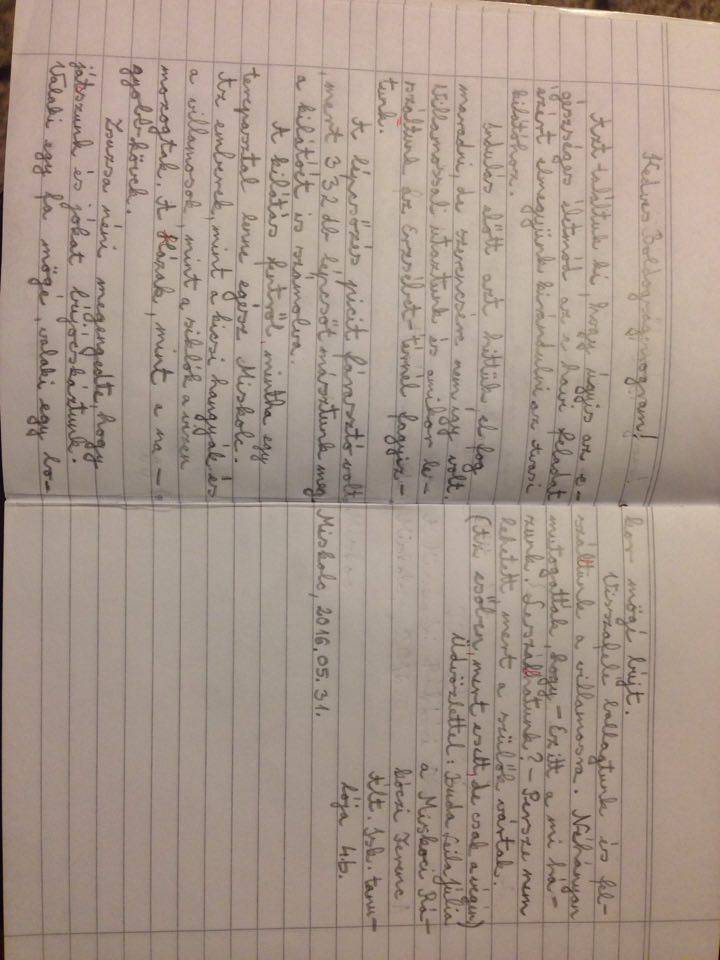 Kedves Boldogságprogram!
Azt találtuk ki, hogy úgyis az e-
gészséges életmód az e havi feladat
ezért elmegyünk kirándulni az Avasi
kilátóhoz.
Indulás előtt azt hittük el fog
maradni, de szerencsére nem így volt.
Villamossal utaztunk és amikor le-
szálltunk az Erzsébet-térnél fagyiz-
tunk.
A lépcsőzés picit fárasztó volt
, mert 332 db lépcsőt másztunk meg
a kilátóét is számolva.
A kilátás fentről, mintha egy
terepasztal lenne egész Miskolc.
Az emberek, mint a kicsi hangyák és
a villamosok, mint a siklók a vizen
mozogtak. A Házak, mint a na-
gyobb kövek.
Zsuzsa néni megengedte, hogy
játszunk és jókat bújócskáztunk.
Valaki egy fa mögé, valaki egy bo-
kor mögé bújt.
Visszafelé ballagtunk és fel-
szálltunk a villamosra. Néhányan
mutogattak, hogy - Ez itt a mi há-
zunk! Leszállhatunk? - Persze nem
lehetett mert a szülők vártak.
(Az esőben, mert esett, de csak a végén)
Üdvözlettel: Buda Leila Júlia
a Miskolci Rá-
kóczi Ferenc
Ált. Isk. tanu-
lója 4.b.
Miskolc, 2016.05.31.